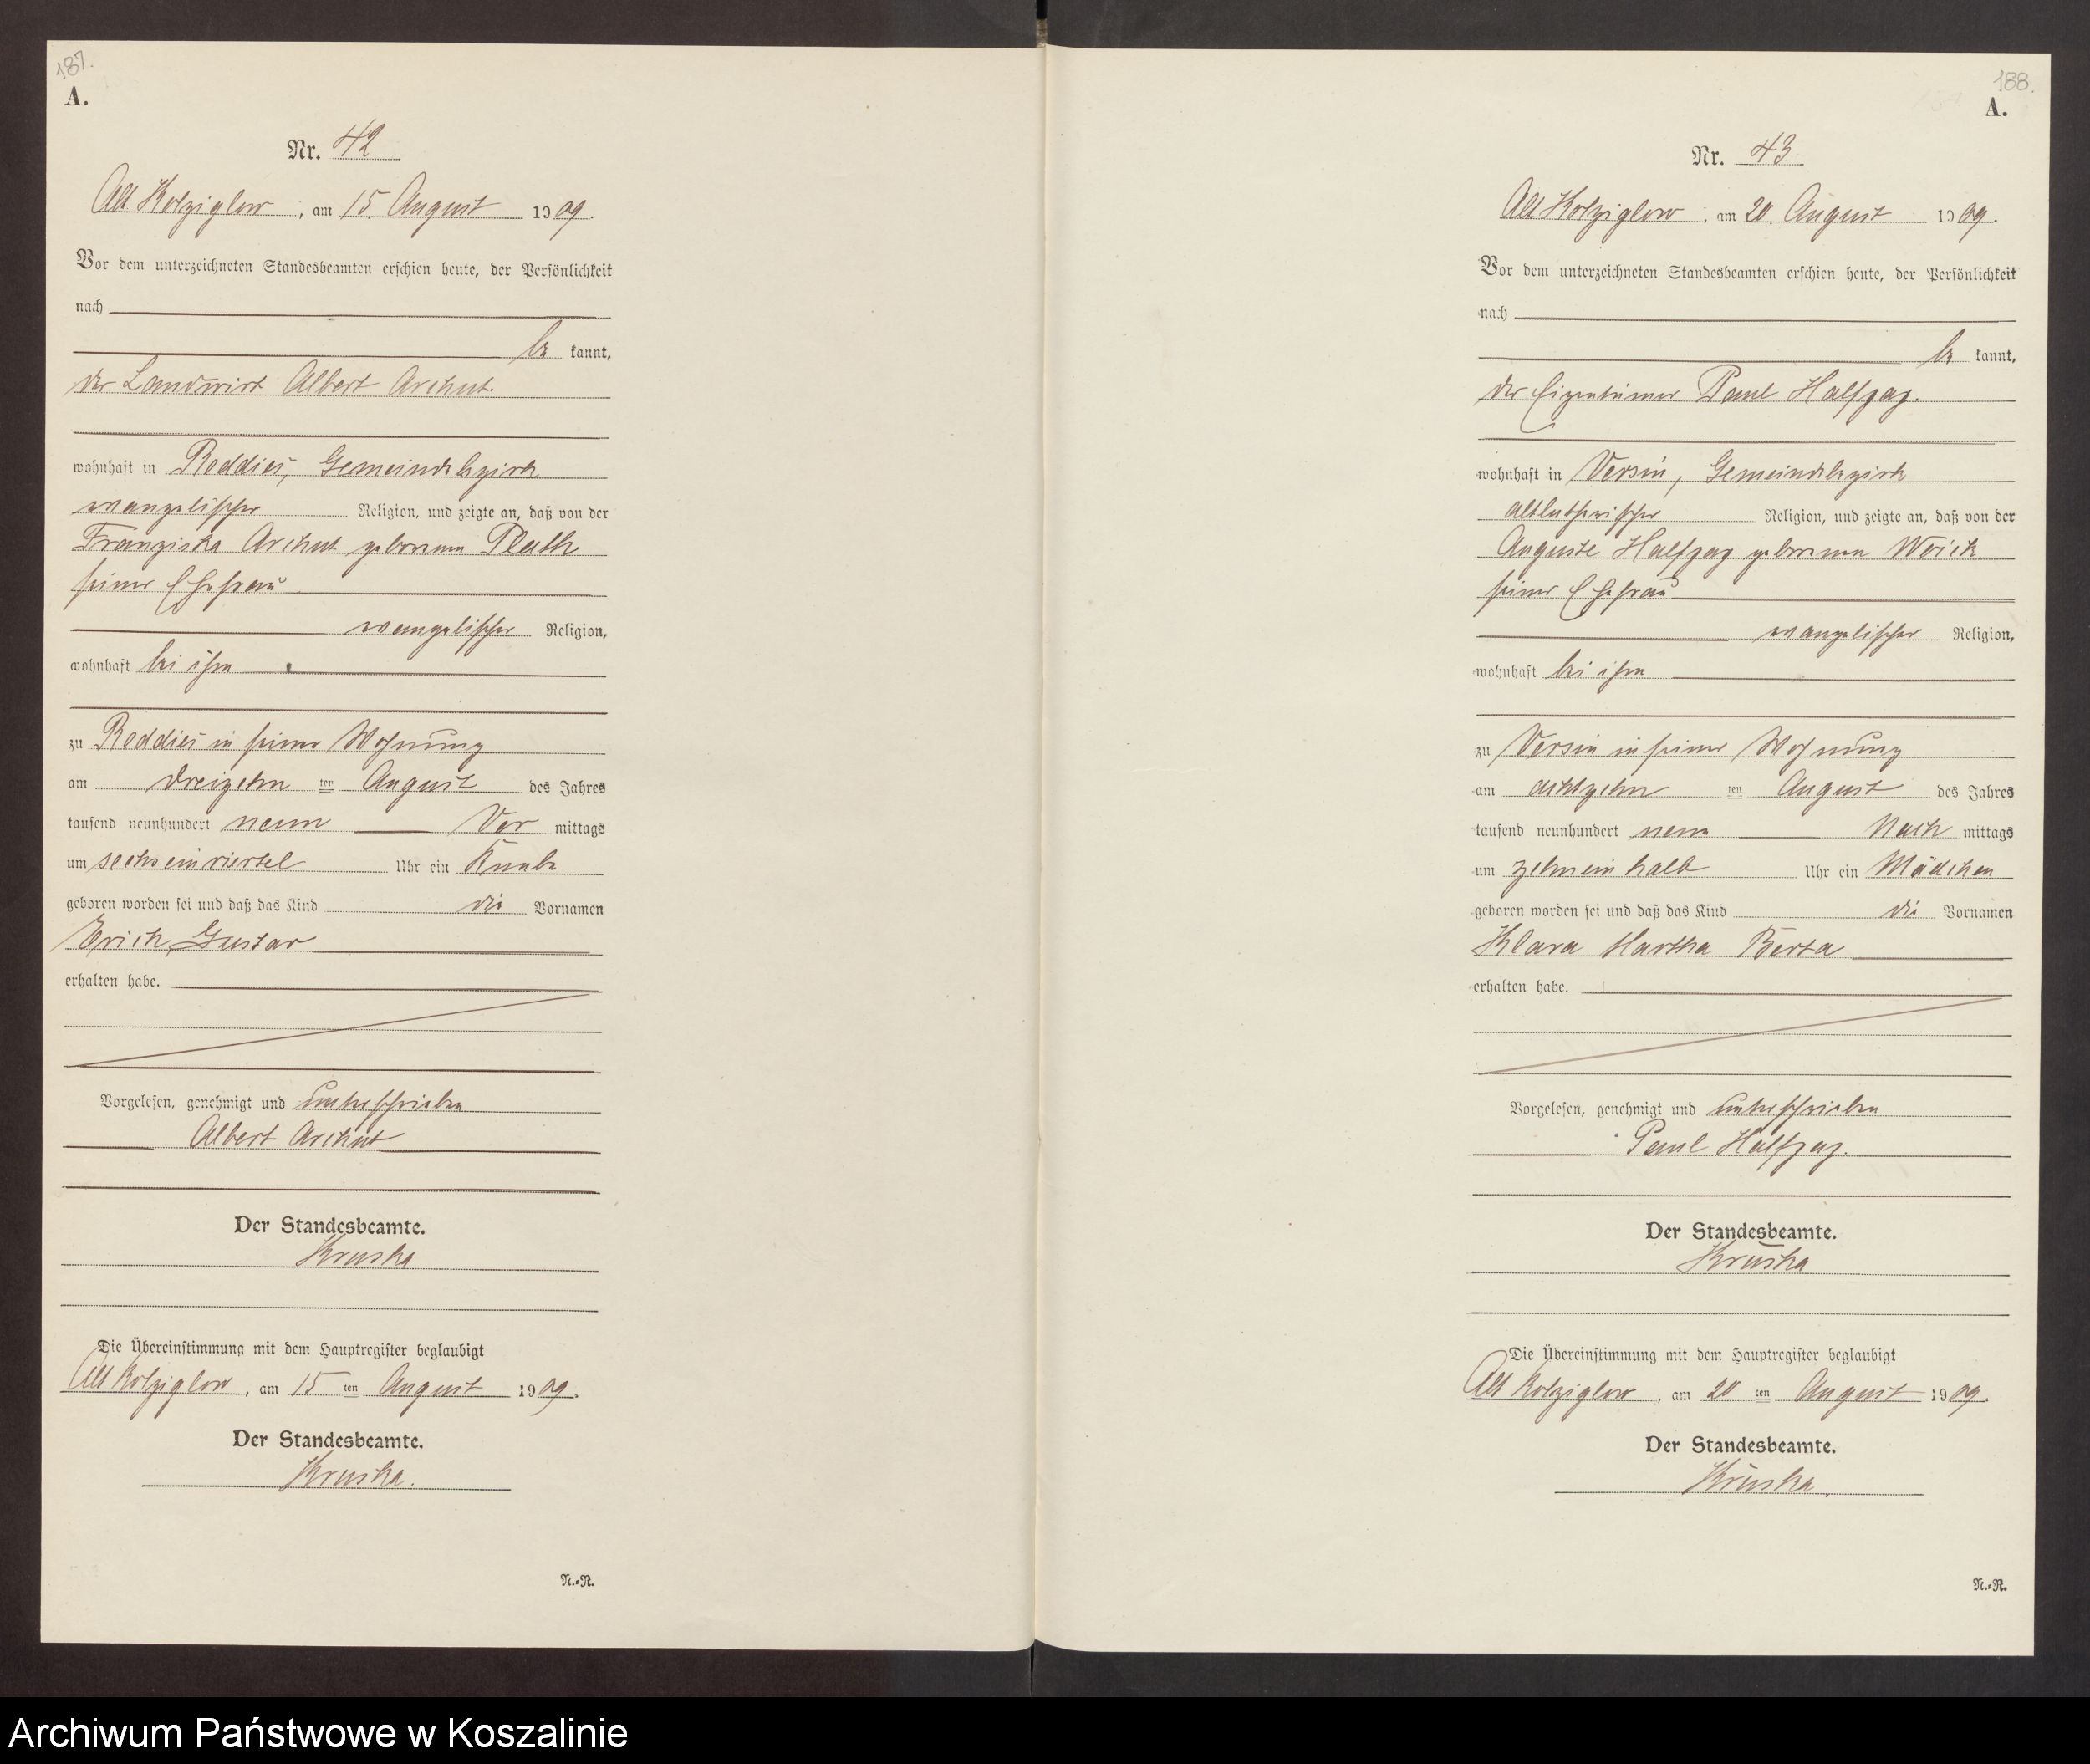 187.
A.
Nr. 42
Alt Kolziglow, am 15. August 1909.
Vor dem unterzeichneten Standesbeamten erschien heute, der Persönlichkeit
nach
be kannt,
der Landwirt Albert Archut.
wohnhaft in Reddies, Gemeindebezirk
evangelischer Religion, und zeigte an, daß von der
Franziska Archut geborenen Plath
seiner Ehefrau
evangelischer Religion,
wohnhaft bei ihm
zu Reddies in seiner Wohnung
am dreizehn ten August des Jahres
tausend neunhundert neun Vor mittags
um sechseinviertel Uhr ein Knabe
geboren worden sei und daß das Kind die Vornamen
Erich Gustav
erhalten habe.
Vorgelesen, genehmigt und unterschrieben
Albert Archut
Der Standesbeamte.
Kruska
Die Übereinstimmung mit dem Hauptregister beglaubigt
Alt Kolziglow, am 15 ten August 1909.
Der Standesbeamte.
Kruska.
N.-R.
188.
A.
Nr. 43
Alt Kolziglow, am 20. August 1909.
Vor dem unterzeichneten Standesbeamten erschien heute, der Persönlichkeit
nach
be kannt,
der Eigentümer Paul Halfpap.
wohnhaft in Versin, Gemeindebezirk
altlutherischer Religion, und zeigte an, daß von der
Auguste Halfpap geborenen Woick
seiner Ehefrau
evangelischer Religion,
wohnhaft bei ihm
zu Versin in seiner Wohnung
am achtzehn ten August des Jahres
tausend neunhundert neun Nach mittags
um zehneinhalb Uhr ein Mädchen
geboren worden sei und daß das Kind die Vornamen
Klara Martha Berta
erhalten habe.
Vorgelesen, genehmigt und unterschrieben
Paul Halfpap.
Der Standesbeamte.
Kruska
Die Übereinstimmung mit dem Hauptregister beglaubigt
Alt Kolziglow, am 20 ten August 1909.
Der Standesbeamte.
Kruska.
N.-R.
Archiwum Państwowe w Koszalinie